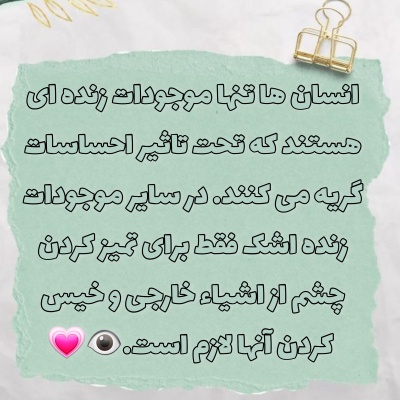 انسان ها تنها موجودات زنده ای
هستند که تحت تاثیر احساسات
گریه می کنند. در سایر موجودات
زنده اشک فقط برای تمیز کردن
چشم از اشیاء خارجی و خیس
کردن آنها لازم است.👁💗